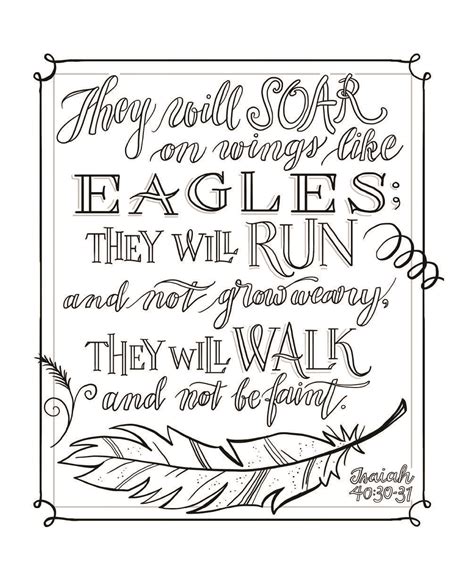 They will SOAR
on wings like
EAGLES;
THEY WILL RUN
and not grow weary,
THEY WILL WALK
and not be faint.
Isaiah
40:30-31